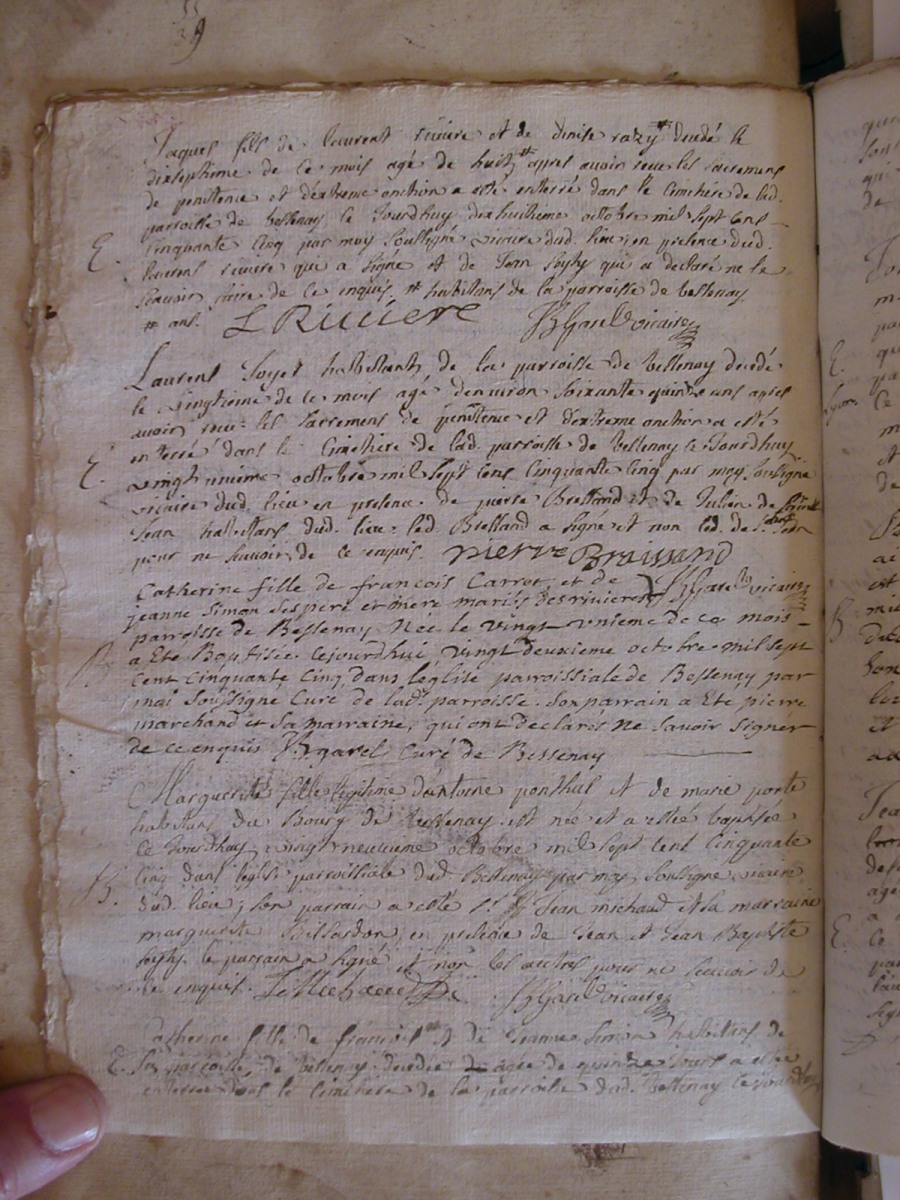 Jaques fils de laurent riviere et de denise razy # decedé le
dixseptieme de ce mois agé de huit # apres avoir receu les sacremens
de penitence et d'extreme onction a esté enterré dans le cimetiere de lad.
parroisse de bessenay ce Jourdhuy dixhuitieme octobre mil sept cens
E. cinquante cinq par moy soussigné vicaire dud. lieu en presence dud.
laurent riviere qui a signé et de Jean qui a declaré ne le
scavoir faire de ce enquis. # habitans de la parroisse de bessenay
# ans. L Riviere vicaire
Laurent habitant de la parroisse de Bessenay decedé
le vingtieme de ce mois agé denviron soixante quinze ans apres
avoir receu les sacremens de penitence et d'extreme onction a esté
enterré dans le Cimetiere de lad. parroisse de Bessenay ce Jourdhuy
E. vingt unieme octobre mil sept cens cinquante cinq par moy soussigné
vicaire dud. lieu en presence de pierre Bressand et de Julien de
Jean habitans dud. lieu led. Bressand a signé et non led. de
pour ne scavoir de ce enquis. pierre Braissand
Catherine fille de francois Carrot et de vicaire
jeanne Simon ses pere et mere mariés des rivieres
parroisse de Bessenay Née le vingt unieme de ce mois
B. a Eté Baptisée cejourdhui vingt deuxieme octobre mil sept
cent cinquante cinq dans leglise parroissiale de Bessenay par
moi soussigné Curé de lad. parroisse. Son parrain a Eté pierre
marchand et sa marraine, qui ont declarés ne savoir signer
de ce enquis garel Curé de Bessenay
Marguerite fille legitime d'antoine ponthus et de marie porte
habitans du Bourg de Bessenay est née et a estée baptisée
ce Jourdhuy vingt neuvieme octobre mil sept cent cinquante
B. cinq dans leglise parroissiale dud. Bessenay par moy soussigné vicaire
dud. lieu; son parrain a esté Sr Jean michaud et sa marraine
marguerite Billardon, en presence de Jean et Jean Baptiste
le parrain a signé et non les autres pour ne scavoir de
ce enquis. vicaire
Catherine fille de francois # et de Jeanne Simon habitans de
E. la parroisse de bessenay decedée agée de quinze Jours a estée
enterrée dans le cimetiere de la parroisse dud. Bessenay ce Jourdhuy